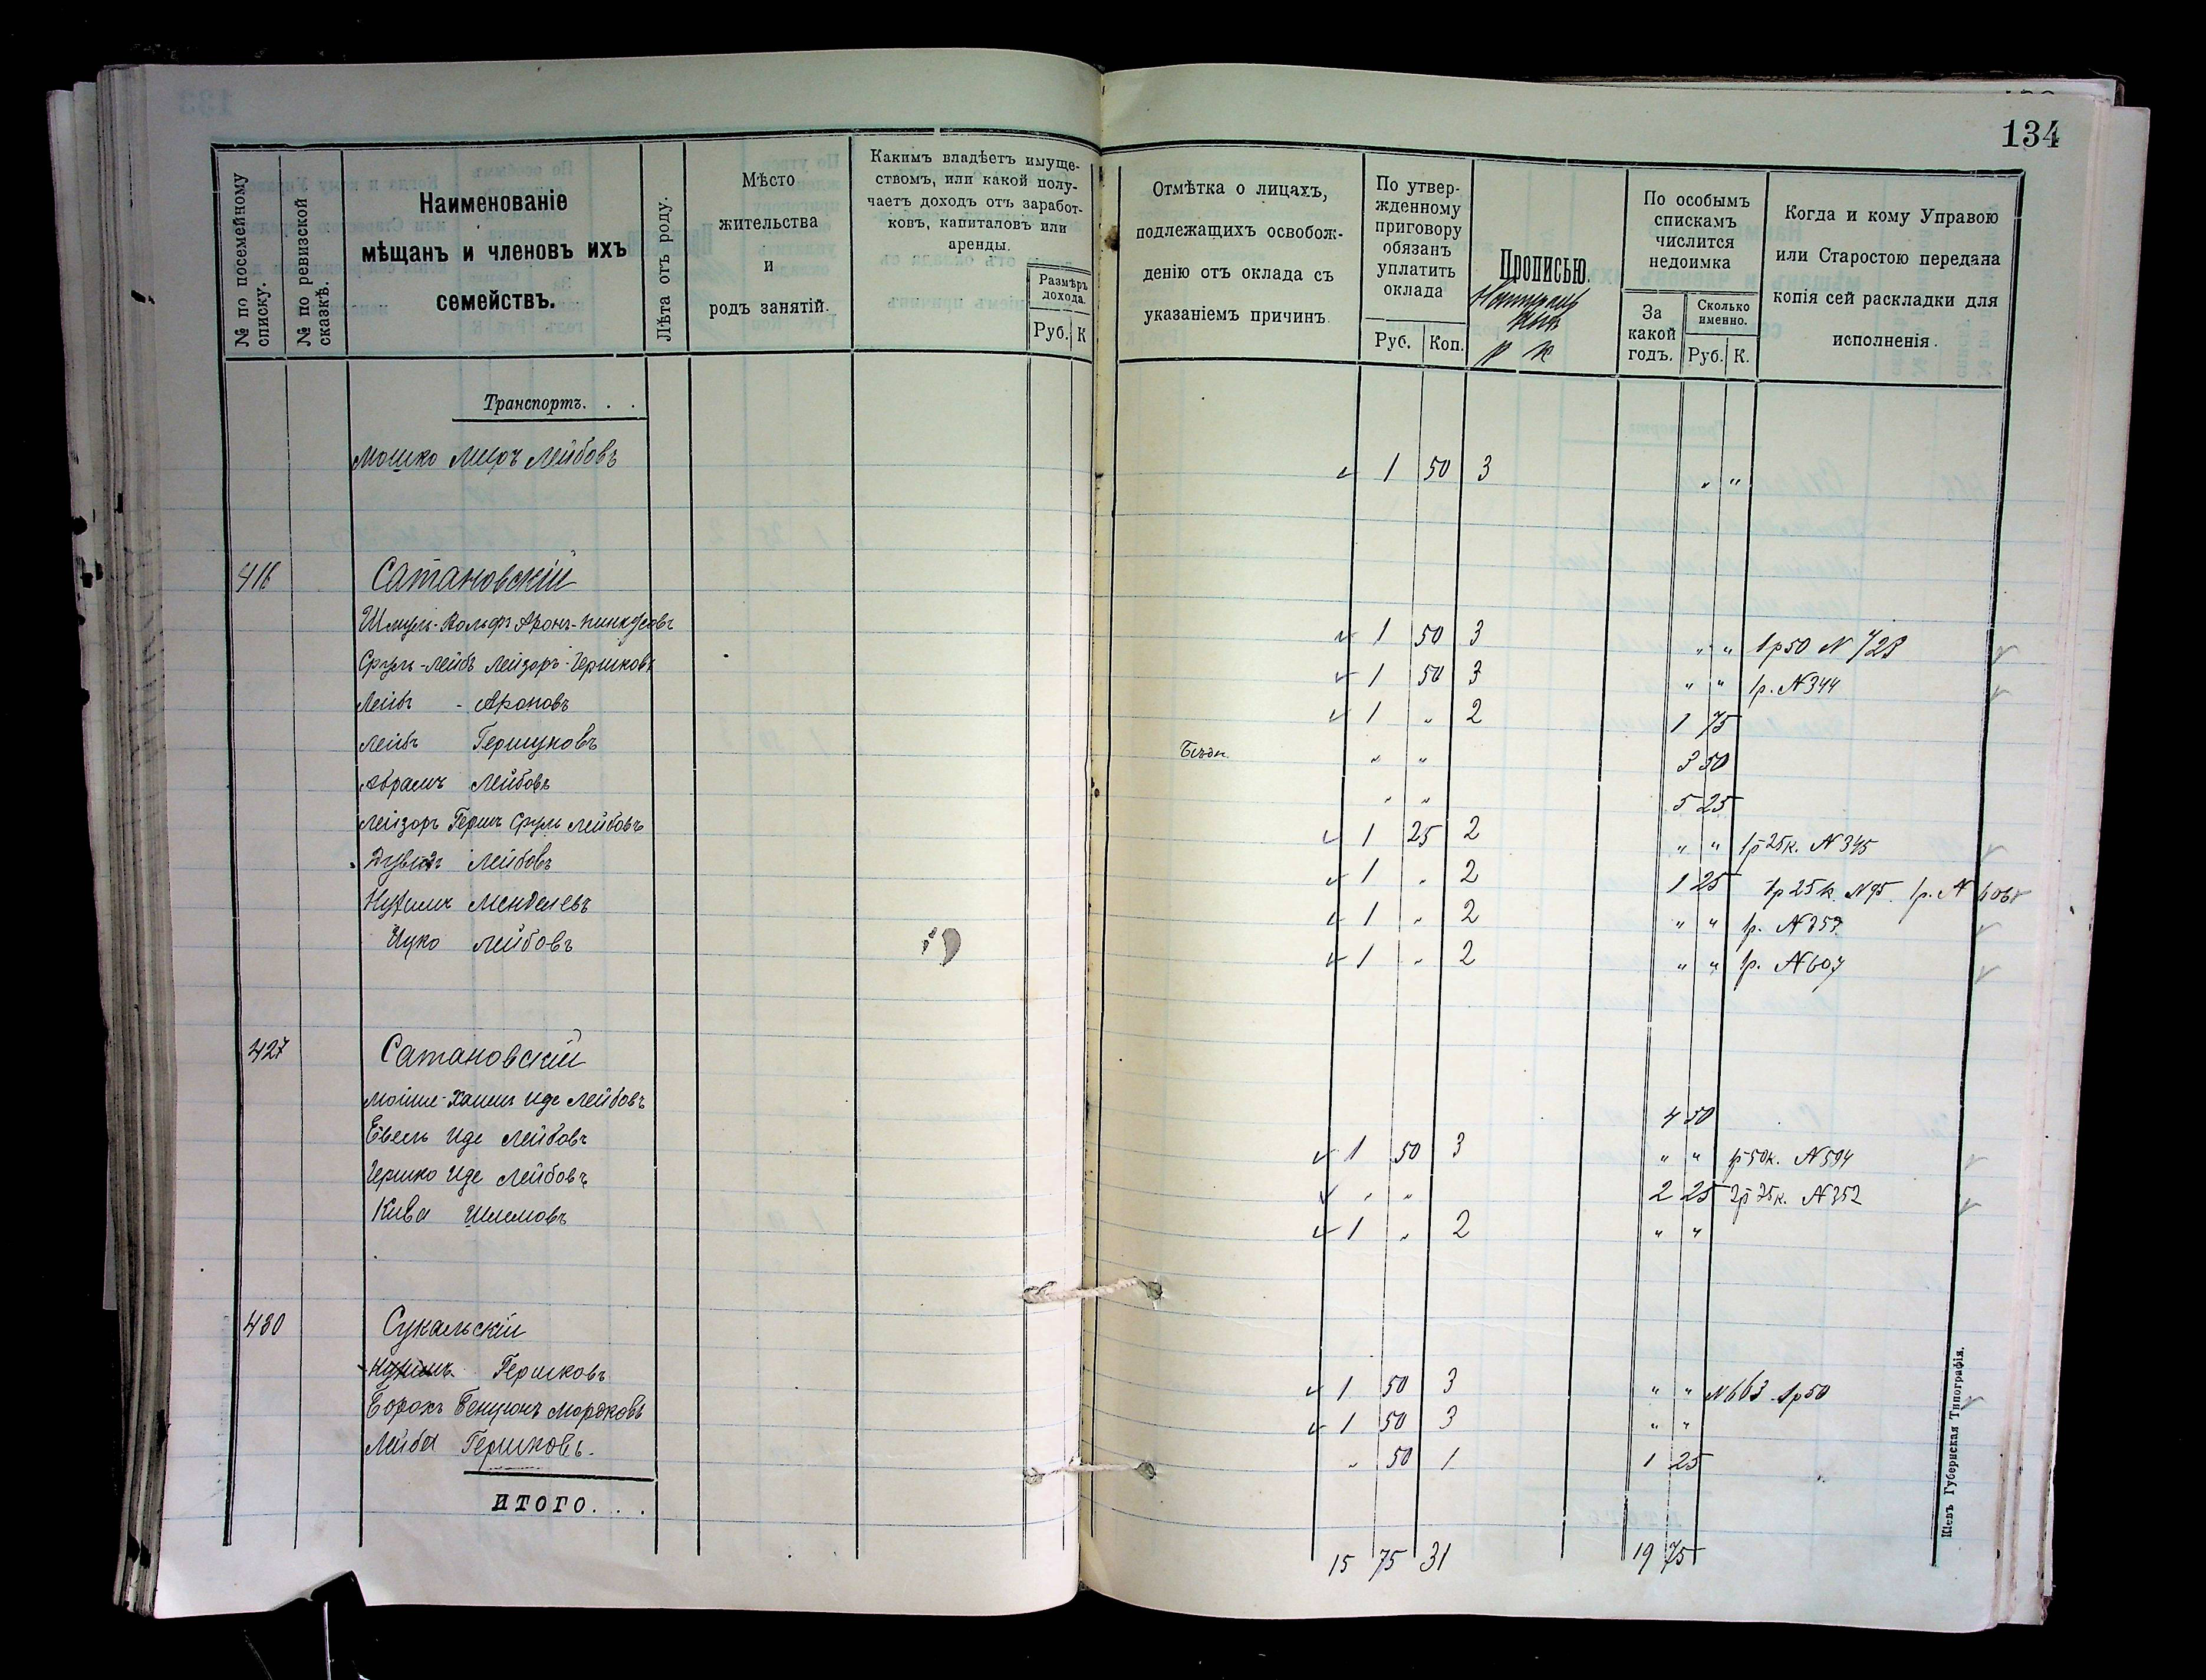 134
№ по посемейному списку.
№ по ревизской сказкѣ.
Наименованіе
мѣщанъ и членовъ ихъ
семействъ.
Лѣта отъ роду.
Мѣсто
жительства
и
родъ занятій.
Какимъ владѣетъ имуще-
ствомъ, или какой полу-
чаетъ доходъ отъ заработ-
ковъ, капиталовъ или
аренды.
Размѣръ
дохода.
Руб. К
Отмѣтка о лицахъ,
подлежащихъ освобож-
денію отъ оклада съ
указаніемъ причинъ.
По утвер-
жденному
приговору
обязанъ
уплатить
оклада
Руб. Коп.
Прописью.
р к
По особымъ
спискамъ
числится
недоимка
За
какой
годъ.
Сколько
именно.
Руб. К.
Когда и кому Управою
или Старостою передана
копія сей раскладки для
исполненія.
Транспортъ. . .
Мошко Меръ Лейбовъ 1 50 3 " "
416 Сатановскій
Шмуль-Вольфъ Аронъ-Пинкусовъ 1 50 3 " " 1р50 N 728
Сруль-Лейбъ Лейзоръ-Гершковъ 1 50 3 " " 1р. N 344
Лейбъ - Ароновъ 1 " 2 1 75
Лейбъ Гершуновъ " " 3 50
Абрамъ Лейбовъ " " 5 25
Лейзоръ Гершъ Сруль Лейбовъ 1 25 2 " " 1р 25к. N 345
Дувидъ Лейбовъ 1 " 2 1 25 1р 25к. N95. 1р. N 606
Нухимъ Менделевъ 1 " 2 " " 1р. N 357
Ицко Лейбовъ 1 " 2 " " 1р. N 607
427 Сатановскій
Мойше-Хаимъ Иде Лейбовъ 4 50
Евель Иде Лейбовъ 1 50 3 " " 1р 50к. N 594
Гершко Иде Лейбовъ " " 2 25 2р 25к. N 352
Кива Шлемовъ 1 " 2 " "
430 Сукальскій
Нухимъ Гершковъ 1 50 3 " " N 663 1р50
Борохъ Бенционъ Мордковъ 1 50 3 " "
Лейба Гершковъ. " 50 1 1 25
ИТОГО. . . 15 75 31 19 75
Кіевъ Губернская Типографія.